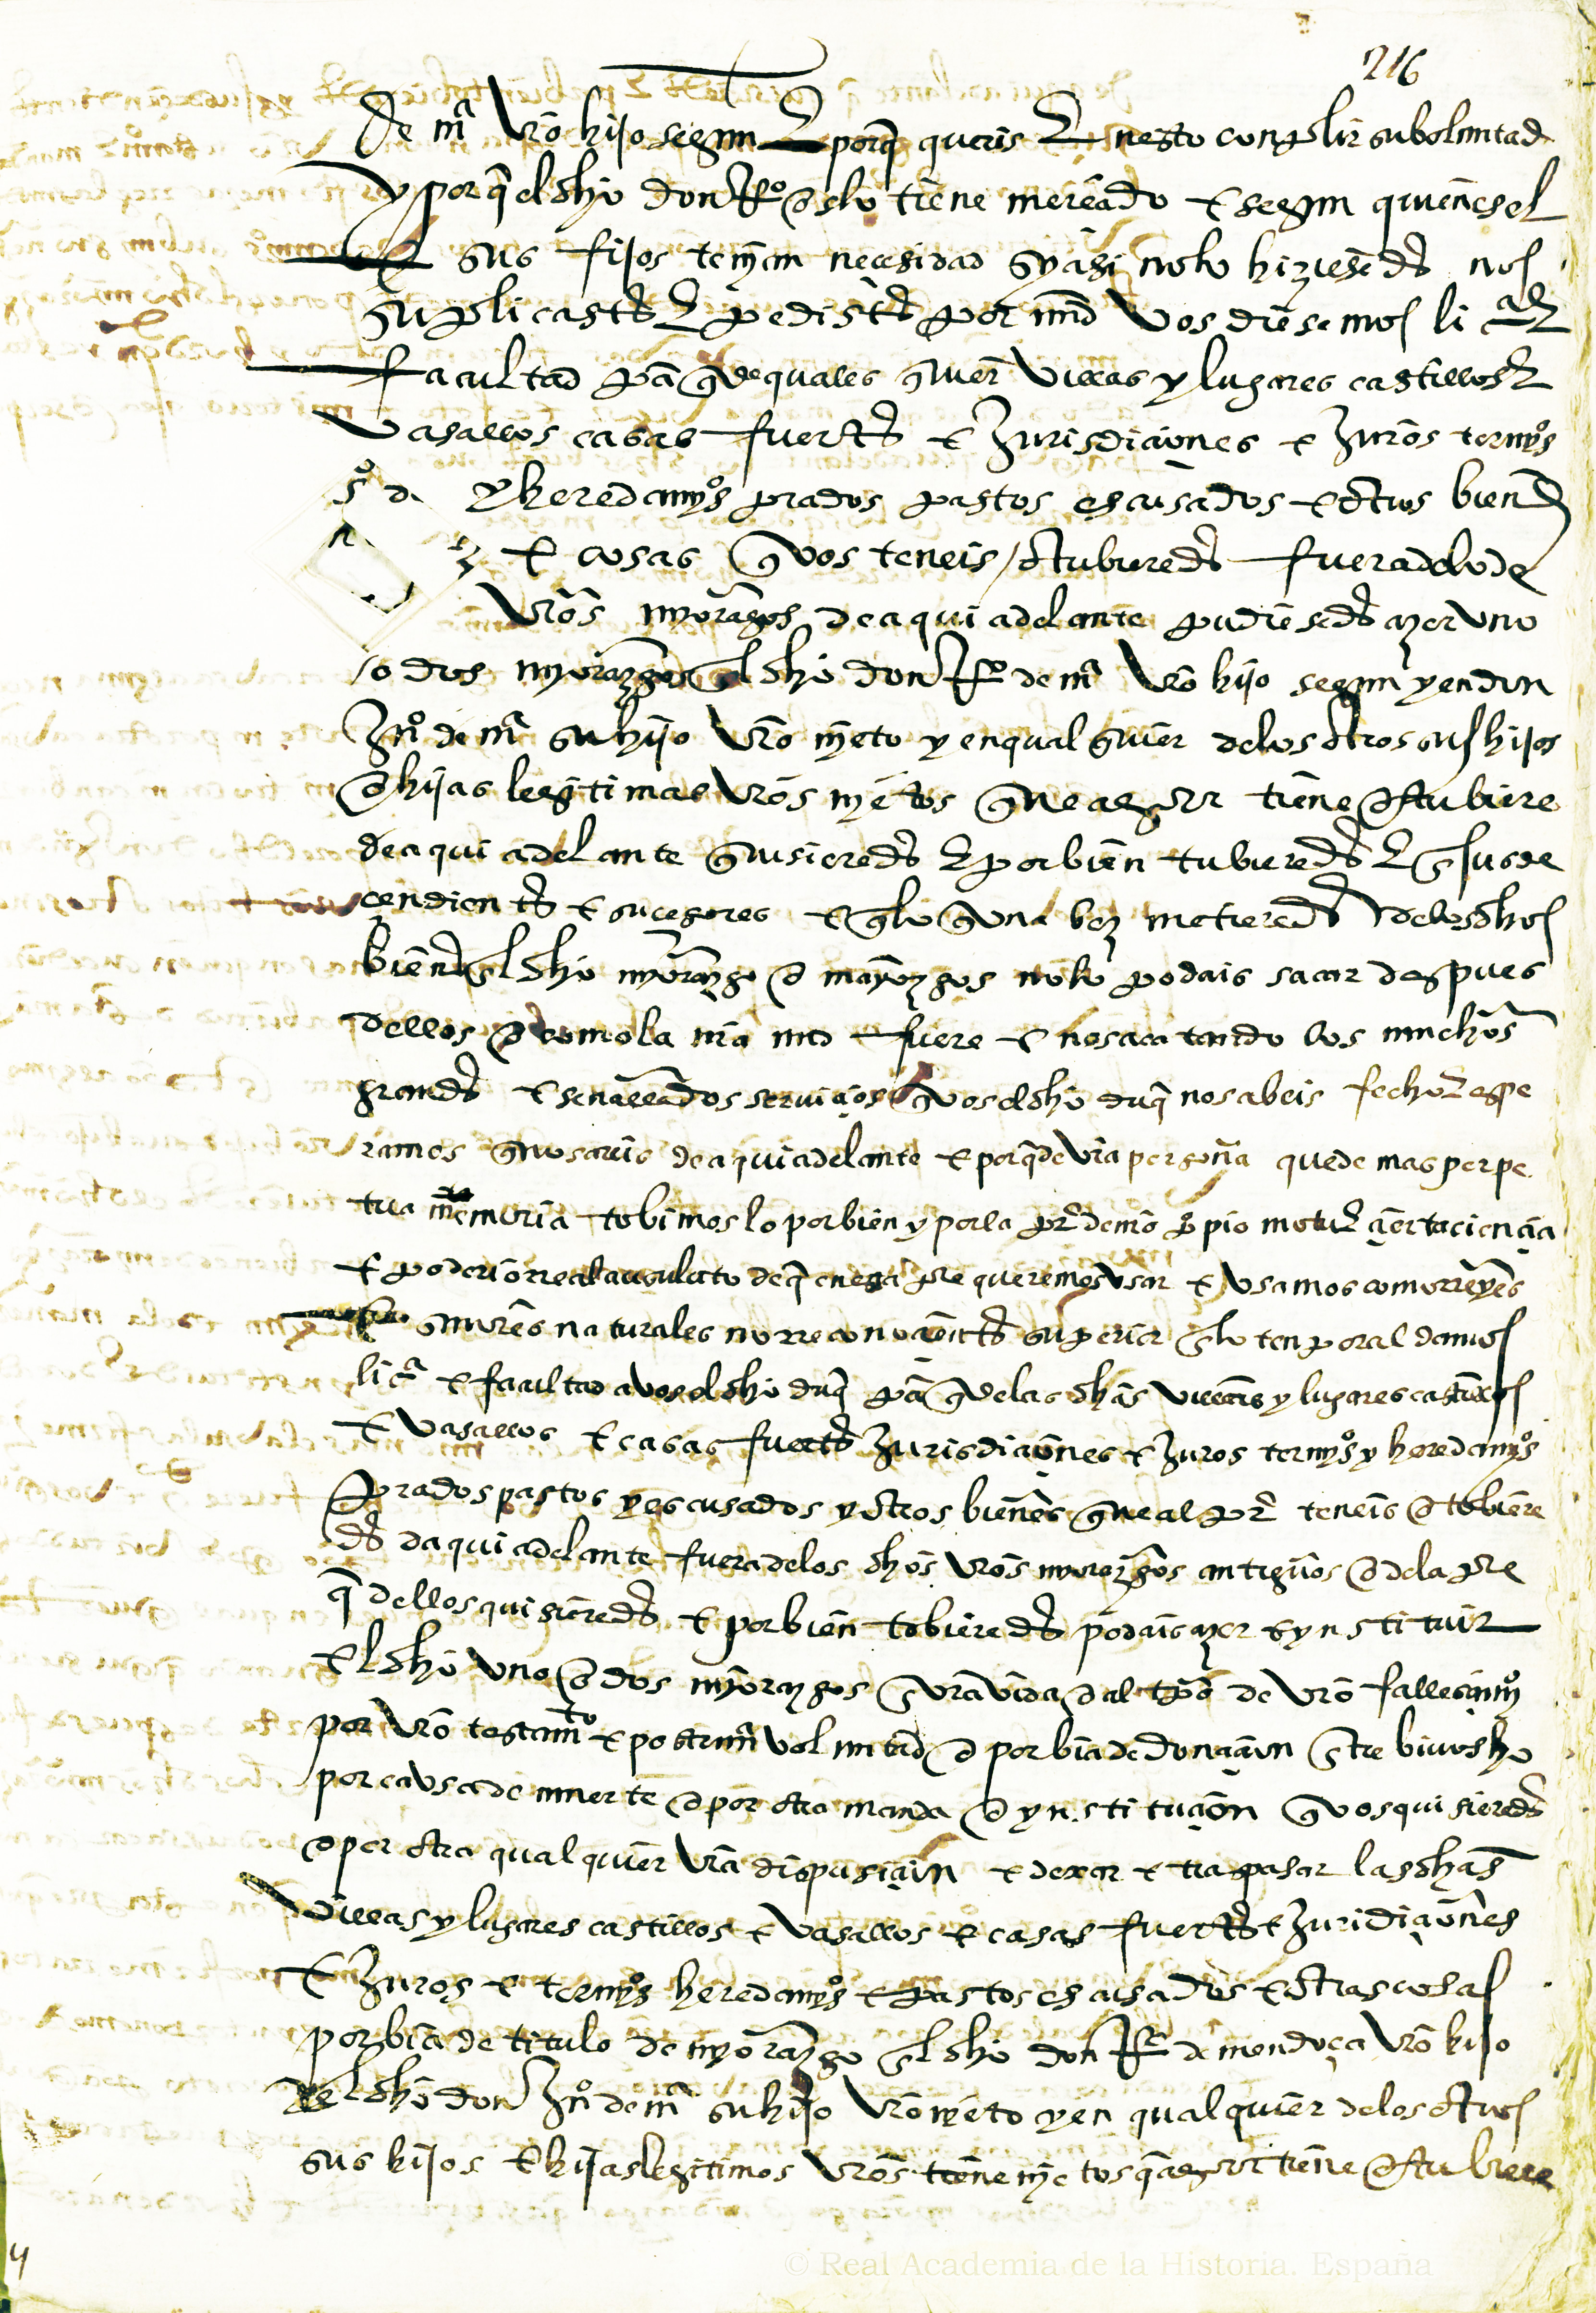 216
de mª vro hijo segun E porq queris E nesto conplir su boluntad
y por q el dho don Rº os lo tiene mereçido e segun quienes el
sus fijos ternian necesidad sy asi no lo hiziesedes nos
suplicastes E pedistes por md vos diesemos li ªE
facultad pa q de quales quier villas y lugares castillos E
vasallos casas fuertes e Jurisdiçiones e Juros termyºs
y heredamyºs prados pastos escusados e otros bienes
e cosas q vos teneis / o tubieredes fuera de lo de
vros myorazgos de aqui adelante pudiesedes azer uno
o dos myorazgos en el dho don Rº de mª vro hijo segun y en don
Ynº de mª su hijo vro nyeto y en qual quier de los otros sus hijos
o hijas legitimas vros nyetos que agora tiene o tubiere
de aqui adelante quisieredes E por bien tubieredes E en sus de
cendientes e suçesores e q lo q una bez metieredes de los dhos
bienes en el dho myorazgo o mayorazgos no lo podais sacar despues
dellos o como la nra md fuere e nos acatando los muchos
grandes e señalados serviçios q vos el dho duq nos abeis fecho E espe
ramos q nos areis de aqui adelante e porq de vra persona quede mas perpe
tua memoria tobimos lo por bien y por la pre de nro propio motu E çierta ciençia
e poderio real absoluto de q en esta pte queremos usar e usamos como reyes
e señores naturales no reconoçientes superior en lo tenporal damos
liçª e facultad a vos el dho duq pa q de las dhas villas y lugares castillos
e vasallos e casas fuertes Jurisdiçiones e Juros termyºs y heredamyºs
prados pastos y escusados y otros bienes que al pre teneis o tobiere
des da qui adelante fuera de los dhos vros myorazgos antiguos o de la pte
q dellos quisieredes e por bien tobieredes podais azer e ynstituir
el dho uno o dos myorazgos en vra vida o al tpo de vro fallesimyº
por vro testamto e postrimª voluntad o por bia de donaçion entre bivos ho
por causa de muerte o por otra manda o ynstituçion q vos quisieredes
o por otra qual quier vra dispusiçion e dexar e traspasar las dhas
villas y lugares castillos e vasallos e casas fuertes e Juridiçiones
e Juros e termyºs heredamyºs e pastos escusados e otras cosas
por bia de titulo de myorazgo en el dho don Rº de mendoça vro hijo
y el dho don Ynº de mª su hijo vro nyeto y en qual quier de los otros
sus hijos e hijas legitimos vros tiene nyetos q agora tiene o tubiere
4
© Real Academia de la Historia. España